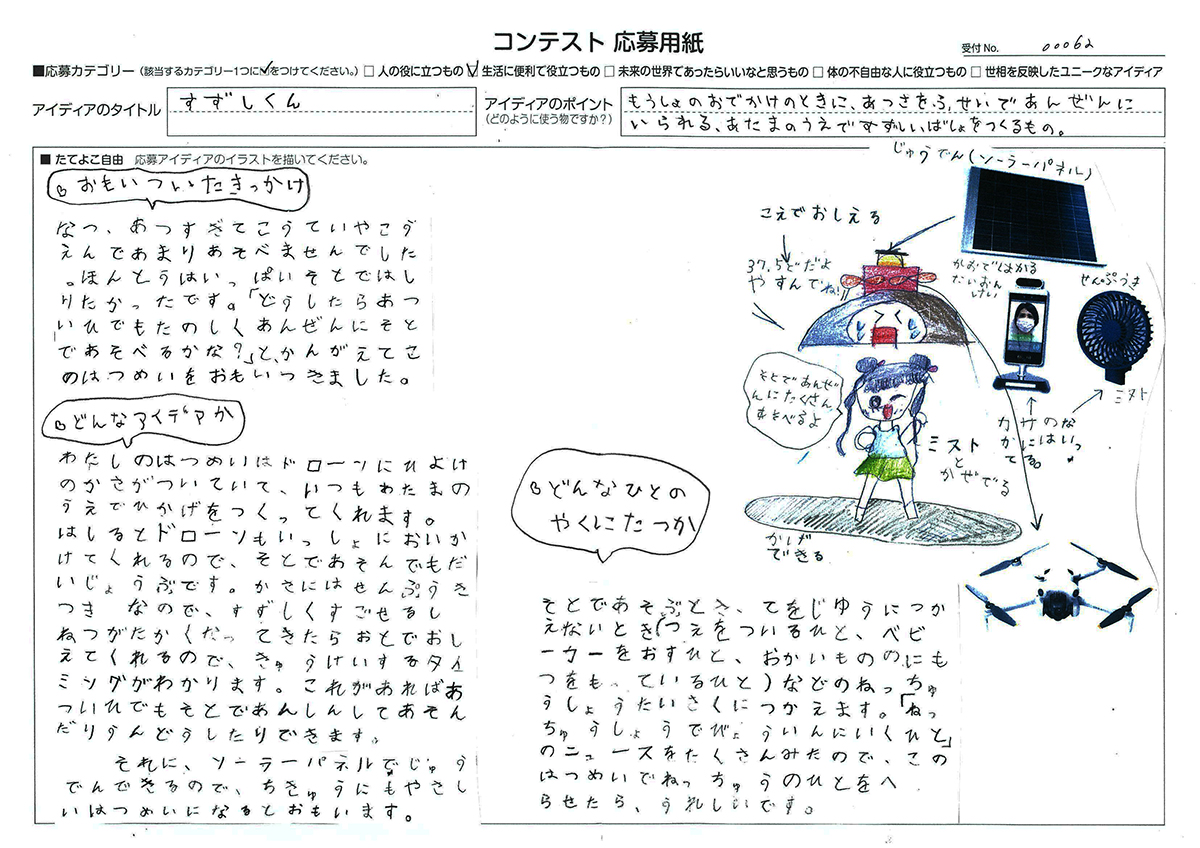 コンテスト 応募用紙
受付 No. 00062
■応募カテゴリー（該当するカテゴリー1つに✓をつけてください。）□ 人の役に立つもの ☑ 生活に便利で役立つもの □ 未来の世界であったらいいなと思うもの □ 体の不自由な人に役立つもの □ 世相を反映したユニークなアイディア
アイディアのタイトル
すずしくん
アイディアのポイント
（どのように使う物ですか？）
もうしょのおでかけのときに、あつさをふせいであんぜんに
いられる、あたまのうえですずしいばしょをつくるもの。
■ たてよこ自由　応募アイディアのイラストを描いてください。
おもいついたきっかけ
なつ、あつすぎてこうていやこう
えんであまりあそべませんでした
。ほんとうはいっぱいそとではし
りたかったです。「どうしたらあつ
いひでもたのしくあんぜんにそと
であそべるかな？」と、かんがえてこ
のはつめいをおもいつきました。
どんなアイデアか
わたしのはつめいはドローンにひよけ
のかさがついていて、いつもあたまの
うえでひかげをつくってくれます。
はしるとドローンもいっしょにおいか
けてくれるので、そとであそんでもだ
いじょうぶです。かさにはせんぷうき
つき なので、すずしくすごせるし
ねつがたかくなってきたらおとでおし
えてくれるので、きゅうけいするタイ
ミングがわかります。これがあればあ
ついひでもそとであんしんしてあそん
だりうんどうしたりできます。
それに、ソーラーパネルでじゅう
でんできるので、ちきゅうにもやさし
いはつめいになるとおもいます。
どんなひとの
やくにたつか
そとであそぶとき、てをじゆうにつか
えないとき（つえをついるひと、ベビ
ーカーをおすひと、おかいもののにも
つをもっているひと）などのねっちゅ
うしょうたいさくにつかえます。「ねっ
ちゅうしょうでびょういんにいくひと」
のニュースをたくさんみたので、この
はつめいでねっちゅうのひとをへ
らせたら、うれしいです。
じゅうでん（ソーラーパネル）
こえでおしえる
37.5どだよ
やすんでね!!
かおではかる
たいおん
けい
せんぷうき
ミスト
カサのな
かにはいっ
てる。
そとであんぜ
んにたくさん
あそべるよ
ミスト
と
かぜでる
かげが
できる